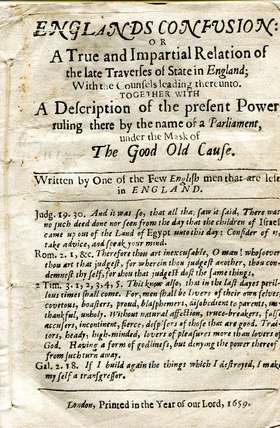 ENGLANDS CONFUSION:
OR
A True and Impartial Relation of
the late Traverses of State in England;
With the Counsels leading thereunto.
TOGETHER WITH
A Description of the present Power
ruling there by the name of a Parliament,
under the Mask of
The Good Old Cause.
Written by One of the Few English men that are left
in ENGLAND.
Judg. 19. 30. And it was so, that all that saw it said, There was
no such deed done nor seen from the day that the children of Israel
came up out of the Land of Egypt unto this day: Consider of it,
take advice, and speak your mind.
Rom. 2. 1, &c. Therefore thou art inexcusable, O man! whosoever
thou art that judgest, for wherein thou judgest another, thou con-
demnest thy self, for thou that judgest dost the same things.
2 Tim. 3. 1, 2, 3, 4, 5. This know also, that in the last dayes peril-
leus times shall come. For, men shall be lovers of their own selves,
covetous, boasters, proud, blasphemers, disobedient to parents, un-
thankful, unholy. Without natural affection, truce-breakers, false
accusers, incontinent, fierce, despisers of those that are good. Trai-
tors, heady, high-minded, lovers of pleasures more than lovers of
God. Having a form of godliness, but denying the power thereof
from such turn away.
Gal. 2. 18. If I build again the things which I destroyed, I make
my self a transgressor.
London, Printed in the Year of our Lord, 1659.